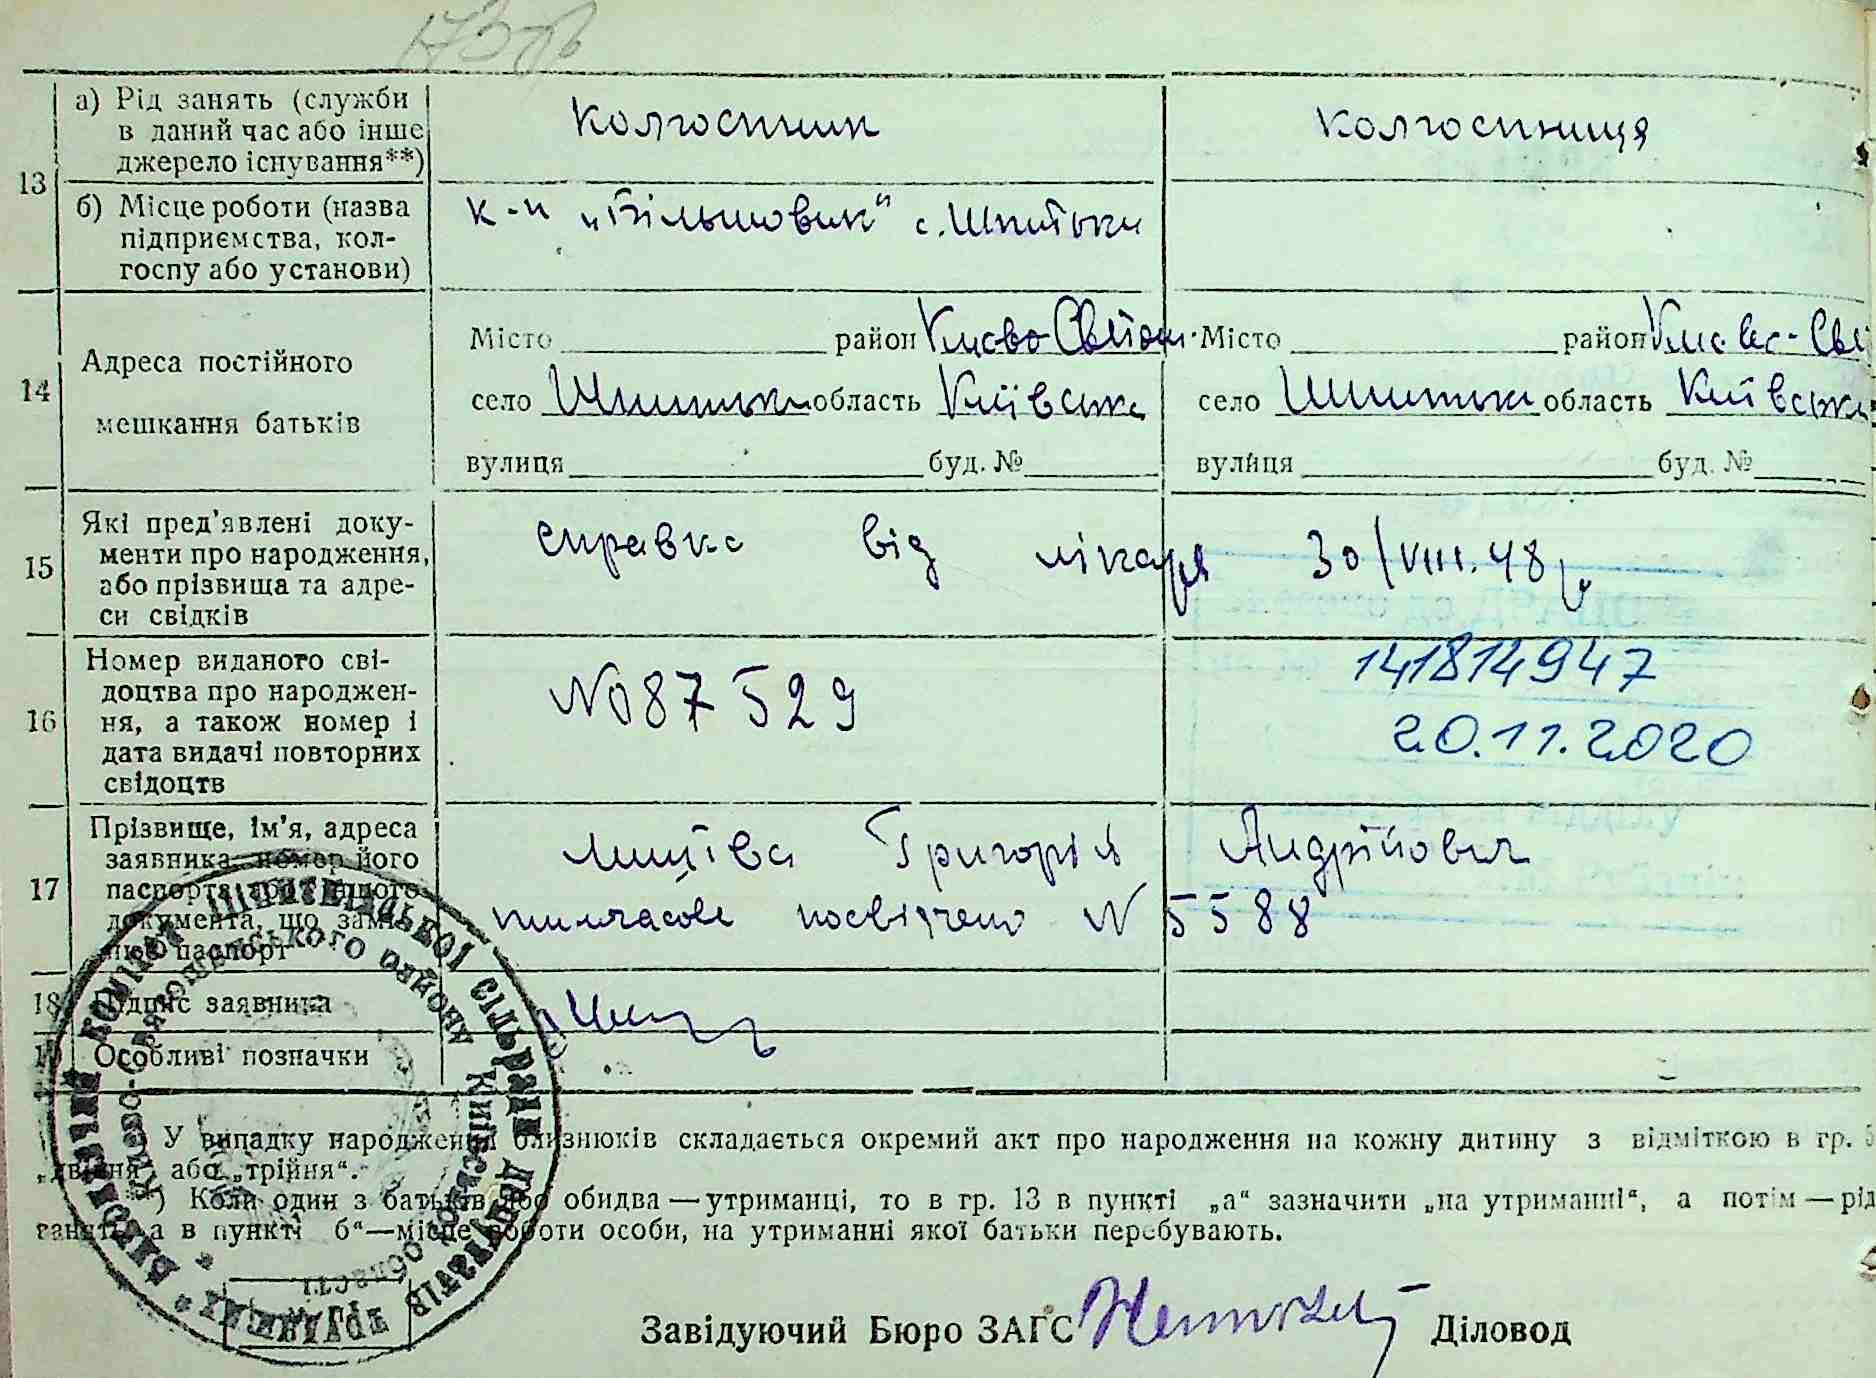 13
а) Рід занять (служби
в даний час або інше
джерело існування**)
колгоспник
колгоспниця
б) Місце роботи (назва
підприємства, кол-
госпу або установи)
к-п „Більшовик“ с. Шпитьки
14
Адреса постійного
мешкання батьків
Місто район Києво Святош. Місто район Києво-Свя
село Шпитьки область Київська село Шпитьки область Київська
вулиця буд. № вулиця буд. №
15
Які пред'явлені доку-
менти про народження,
або прізвища та адре-
си свідків
справка від лікаря 30/VIII.48р.
16
Номер виданого сві-
доцтва про народжен-
ня, а також номер і
дата видачі повторних
свідоцтв
№087529
141814947
20.11.2020
17
Прізвище, ім'я, адреса
заявника, номер його
паспорта або іншого
документа, що замі-
нює паспорт
Григорія Андрійович
тимчасове посвідчено № 5588
18 Підпис заявника
19 Особливі позначки
У випадку народження близнюків складається окремий акт про народження на кожну дитину з відміткою в гр. 5
„двійня“ або „трійня“.
) Коли один з батьків або обидва — утриманці, то в гр. 13 в пункті „а“ зазначити „на утриманні“, а потім — рід
занять, а в пункті б“—місце роботи особи, на утриманні якої батьки перебувають.
Виконавчий комітет Шпитьківської сільради депутатів трудящих
Києво-Святошинського району Київської області
Завідуючий Бюро ЗАГС Діловод